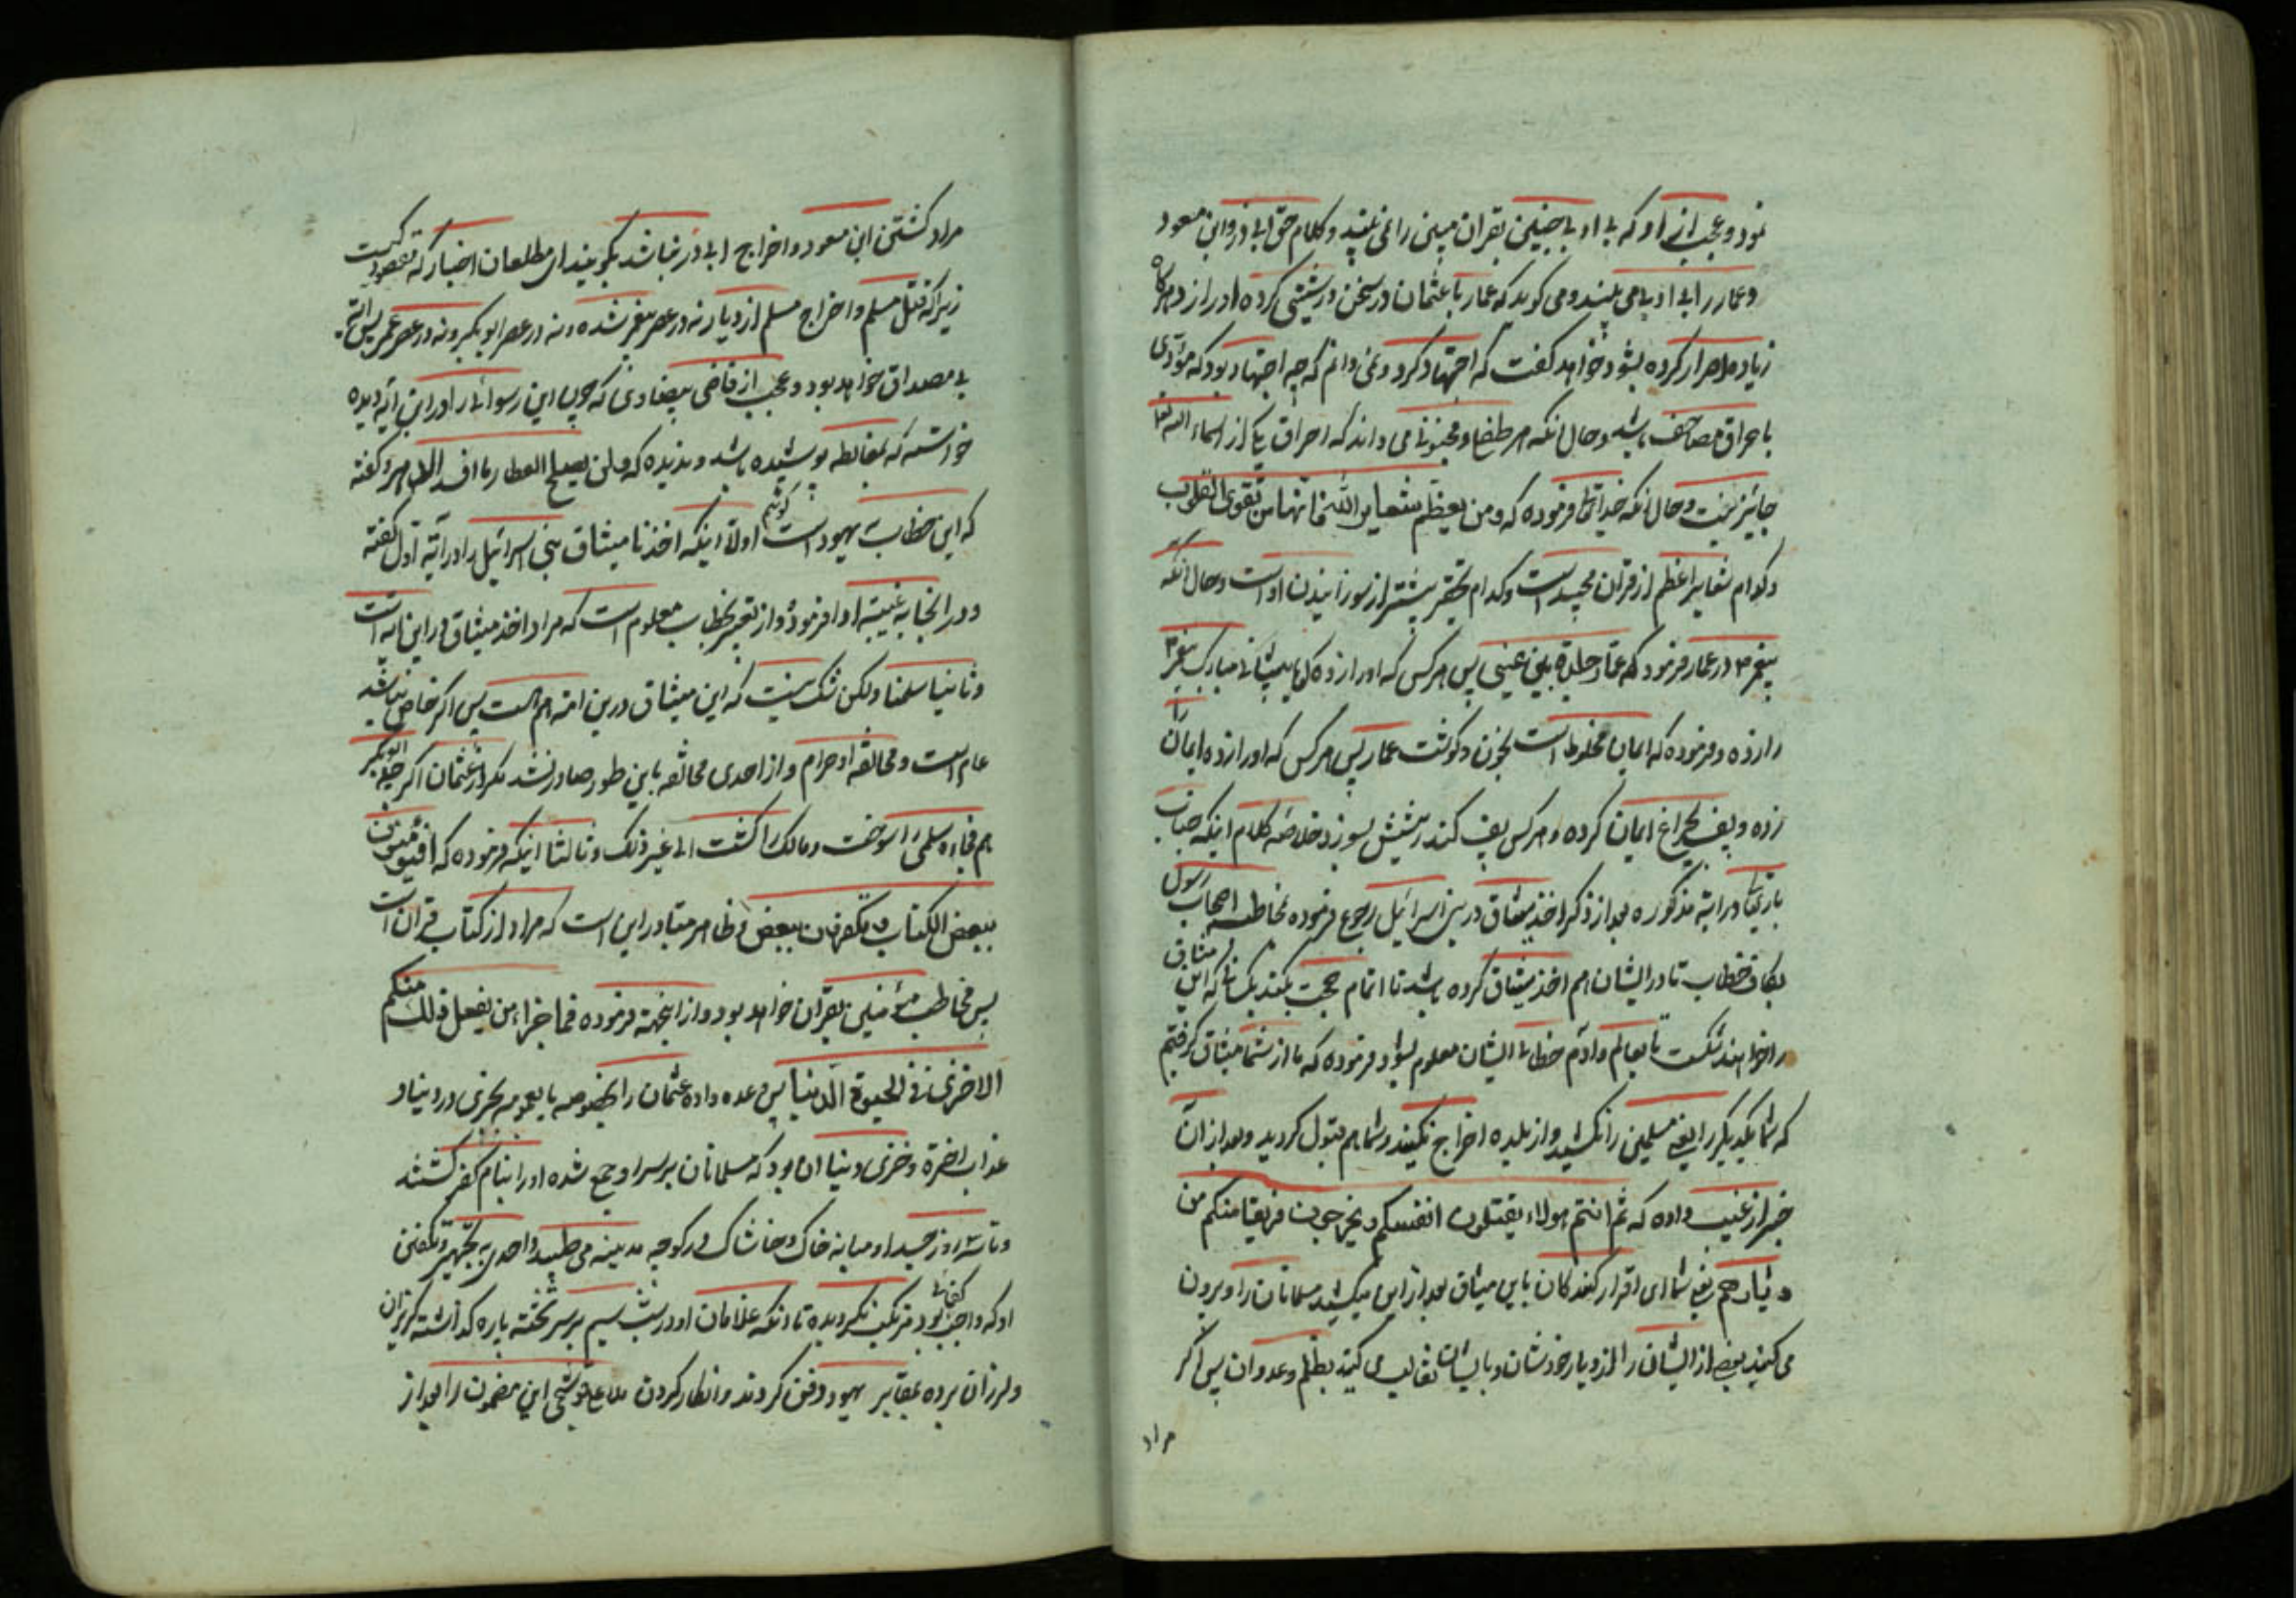 نمود و عجب از او که بی ادبی چنین بقران مبین را نمی بیند و کلام حق ابی ذر و ابن مسعود
و عمار را بی ادبی می بیند و می کوید که عمار با عثمان در سخن درشتی کرده او را زد هر کاه
زیاده اصرار کرده بشود خواهد کفت که اجتهاد کرد و نمی دانم که چه اجتهاد بود که مؤدی
باحراق مصاحف باشد و حال انکه هر طفل و مجنونی می داند که احراق یکی از اسماء الله تعا
جایز نیست و حال انکه خدایتعا فرموده که ومن یعظم شعایر الله فانها من تقوی القلوب
و کدام شعایر اعظم از قران مجید است و کدام تحقیر بیشتر از سوزانیدن او است و حال انکه
پیغمبر ص در عمار فرمود که عمار جلدة بین عینی پس هر کس که او را زده کویا پیشانی مبارک پیغمبر ص
را زده و فرموده که ایمان مخلوط است بخون و کوشت عمار پس هر کس که او را زده ایمان را
زده و پف بچراغ ایمان کرده و هر کس پف کند ریشش بسوزد خلاصه کلام اینکه جناب
باریتعا در ایه مذکوره بعد از ذکر اخذ میثاق در بنی اسرائیل رجوع فرموده بمخاطبه اصحاب رسول
بکاف خطاب تا در ایشان هم اخذ میثاق کرده باشد تا اتمام حجت بکند بکسانی که این میثاق
را خواهند شکست تا بعالم و آدم خطای ایشان معلوم بشود و فرموده که ما از شما میثاق کرفتیم
که شما یکدیکر را یعنی مسلمین را نکشید و از بلده اخراج نکنید و شما هم قبول کردید و بعد از ان
خبر از غیب داده که ثم انتم هولاء یقتلون انفسکم ویخرجون فریقا منکم من
دیارهم یعنی شما ای اقرار کنندکان باین میثاق بعد از این میکشید مسلمانان را و بیرون
می کنید بعضی از ایشان را از دیار خودشان و با ایشان تغالب می کنید بظلم و عدوان پس اکر
مراد
مراد کشتن ابن مسعود و اخراج ابی ذر نباشد بکویید ای مطلعان اخبار که مقصود کیست
زیرا که قتل مسلم و اخراج مسلم از دیار نه در عصر پیغمبر شده و نه در عصر ابو بکر و نه در عصر عمر پس آیه
بی مصداق خواهد بود و عجب از قاضی بیضاوی که چون این رسوائی را در این آیه دیده
خواسته که بمغالطه پوشیده باشد و ندیده که ولن یصلح العطار ما افسد الدهر و کفته
که این خطاب به یهود است کوئیم اولا اینکه اخذنا میثاق بنی اسرائیل را در آیه اول کفته
و در انجا به غیبة ادا فرموده و از تغییر خطاب معلوم است که مراد اخذ میثاق در این امة است
و ثانیا سلمنا ولکن شک نیست که این میثاق درین امة هم هست پس اکر خاص نباشد
عام است و مخالفة او حرام و از احدی مخالفه باین طور صادر نشد مکر از عثمان اکر چه ابو بکر
هم فجاءه سلمی را سوخت و مالک را کشت الی غیر ذلک و ثالثا اینکه فرموده که افتؤمنون
ببعض الکتاب وتکفرون ببعض و ظاهر متبادر این است که مراد از کتاب قران است
پس مخاطب مؤمنین بقران خواهد بود و از اینجهة فرموده فما جزاء من یفعل ذلک منکم
الا خزی فی الحیوة الدنیا پس وعده داده عثمان را بخصوصه یا بعمومه بخزی در دنیا و
عذاب اخرة و خزی دنیا ان بود که مسلمانان بر سر او جمع شده او را بنام کفر کشتند
و تا سه روز جسد او میانه خاک و خاشاک در کوچه مدینه می طپید و احدی به تجهیز و تکفین
او که واجب کفائی بود مرتکب نکردیده تا آنکه غلامان او در شب سیم بر سر تخته پاره کذاشته کریزان
و لرزان برده بمقابر یهود دفن کردند و انظار کردن ملا علی قوشچی این مضمون را بعد از